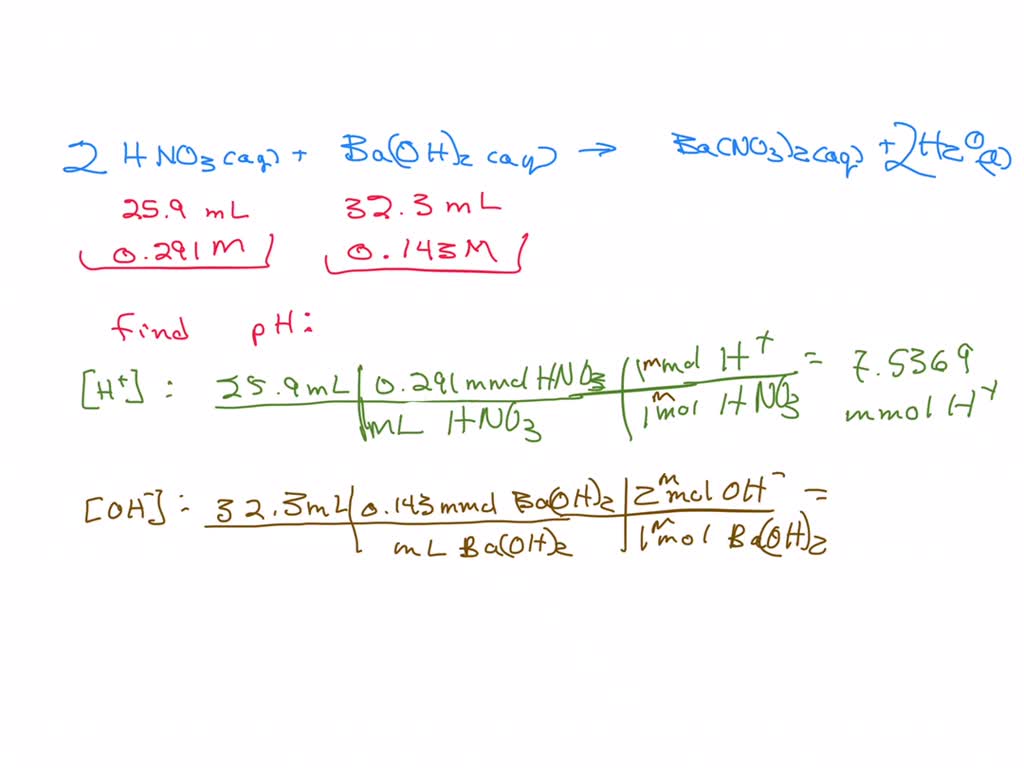 2 HNO3(aq) + Ba(OH)2(aq) → Ba(NO3)2(aq) + 2H2O(l)
25.9 mL 32.3 mL
0.291 M 0.143 M
find pH:
[H+] : 25.9 mL | 0.291 mmol HNO3 | 1 mmol H+ = 7.5369
mL HNO3 | 1 mmol HNO3 mmol H+
[OH-] : 32.3 mL | 0.143 mmol Ba(OH)2 | 2 mmol OH- =
mL Ba(OH)2 | 1 mmol Ba(OH)2